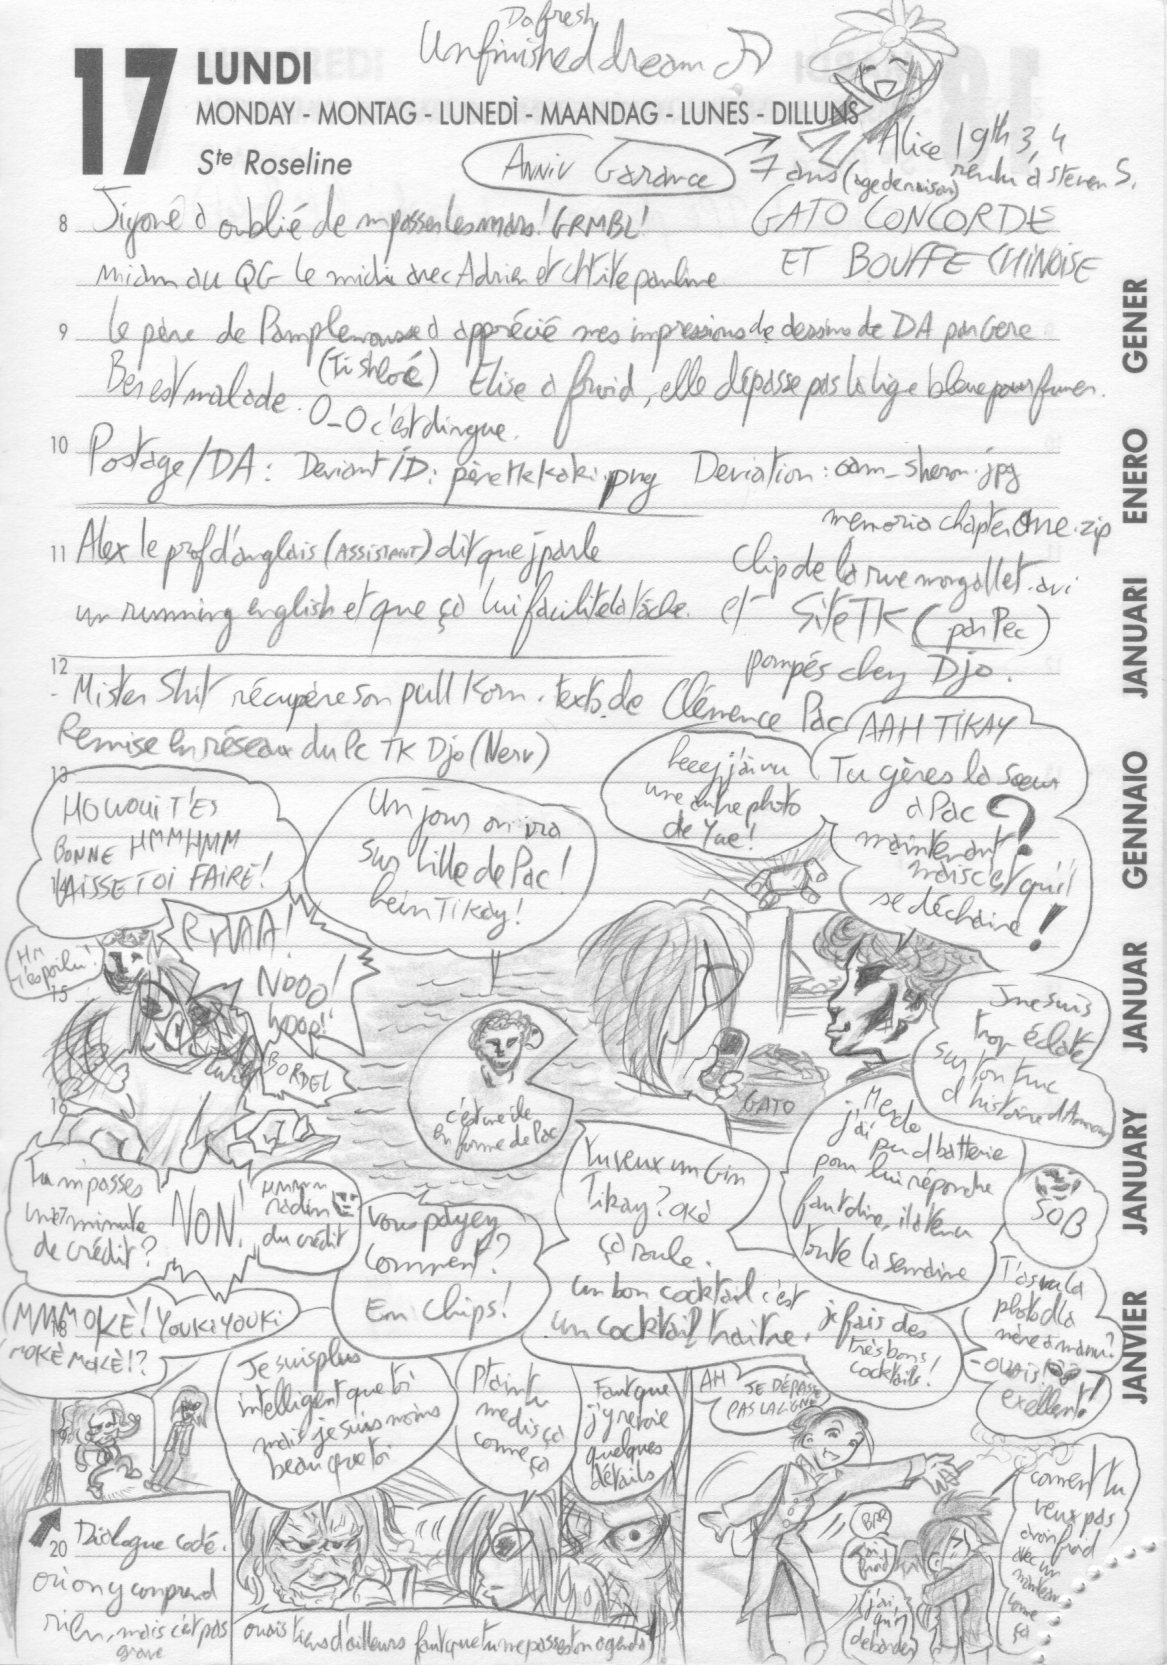 Da fresh
Unfinished dream
17 LUNDI
MONDAY - MONTAG - LUNEDÌ - MAANDAG - LUNES - DILLUNS
Ste Roseline
ANNIV Garance
7 ans (age de raison)
Alice 19th 3, 4
rendu à Steven S.
GATO CONCORDE
ET BOUFFE CHINOISE
8 Jiyoné a oublié de m'passer les mars! GRMBL!
miam au QG le midi avec Adrien et chtite pauline
9 Le père de Pamplemousse a apprécié mes impressions de dessins de DA par Gere
(Tishloé)
Ben est malade. Elise a fruid, elle dépasse pas la ligne bleue pour fumer.
O_O c'est dingue.
10 Postage/DA: Deviant ID: pèneHekaki.png Deviation: oam_sheron.jpg
memoria chapter One.zip
11 Alex le prof d'anglais (ASSISTANT) dit que j'parle
un running english et que ça lui facilite la tâche.
Clip de la rue morgallet.avi
et Site TK (par Pec)
pompés chez Djo.
12
- Mister Shit récupère son pull Korn. textos de Clémence Pac
Remise en réseau du Pc TK Djo (Nerv)
13
HOWOUI T'ES
BONNE HMMHMM
LAISSE TOI FAIRE!
Un jour on ira
sur l'ille de Pac!
hein Tikay!
heeey j'ai vu
une autre photo
de Yue!
AAH TIKAY
Tu gères la sœur
à Pac?
maintenant!
mais c'est qu'il
se déchaine!
HM
t'es poilu!
RHAA!
NOOO!
BORDEL
15
c'est une ile
en forme de Pac
GATO
J'me suis
trop éclaté
sur ton truc
d'histoire d'Amour
16
Merde
j'ai pu d'batterie
pour lui répondre
faut dire, il a tenu
toute la semaine
SOB
Tu m'passes
une minute
de crédit?
NON!
HMMM
radin
du crédit
Vous payez
comment?
En Chips!
Tu veux un Gin
Tikay? Okè
ça roule.
un bon cocktail c'est
un cocktail traitre.
je fais des
très bons!
cocktails!
T'as vu la
photo d'la
mère à manu?
- OUAIS!
exellent!!
18
MMMOKÈ! YOUKAYOUKI
MOKÈ MOKÈ!?
Je suis plus
intelligent que toi
mais je suis moins
beau que toi
Ptain tu
me dis ça
comme ça
Faut que
j'y revoie
quelques
détails
AH
SE DÉPASSE
PAS LA LIGNE
20
Dialogue codé.
où on y comprend
rien, mais c'est pas
grave
ouais tiens d'ailleurs faut que tu me passes ton agenda
BRR
j'ai
froid
j'ai
qu'à
déborder
comment tu
veux pas
avoir froid
avec un
manteau
comme
ça
JANVIER JANUARY JANUAR GENNAIO JANUARI ENERO GENER